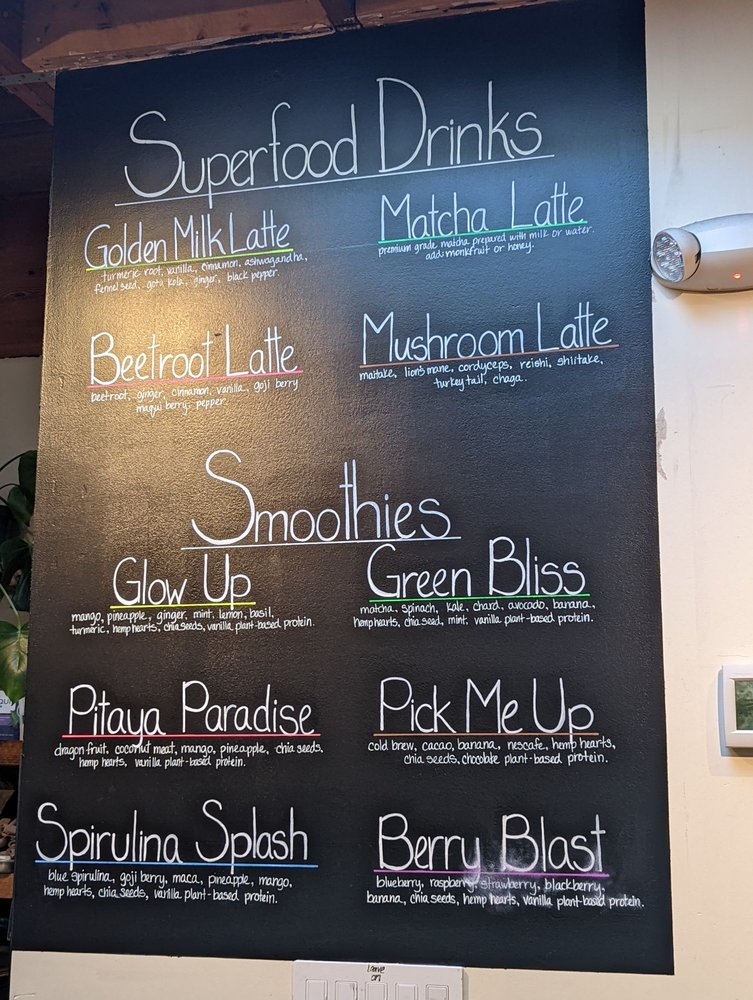 Superfood Drinks
Golden Milk Latte
turmeric root, vanilla, cinnamon, ashwagandha,
fennel seed, gotu kola, ginger, black pepper.
Matcha Latte
premium grade matcha prepared with milk or water.
add: monkfruit or honey.
Beetroot Latte
beetroot, ginger, cinnamon, vanilla, goji berry
maqui berry, pepper.
Mushroom Latte
maitake, lion's mane, cordyceps, reishi, shiitake,
turkey tail, chaga.
Smoothies
Glow Up
mango, pineapple, ginger, mint, lemon, basil,
turmeric, hemp hearts, chia seeds, vanilla plant-based protein.
Green Bliss
matcha, spinach, kale, chard, avocado, banana,
hemp hearts, chia seed, mint, vanilla plant-based protein.
Pitaya Paradise
dragon fruit, coconut meat, mango, pineapple, chia seeds,
hemp hearts, vanilla plant-based protein.
Pick Me Up
cold brew, cacao, banana, nescafe, hemp hearts,
chia seeds, chocolate plant-based protein.
Spirulina Splash
blue spirulina, goji berry, maca, pineapple, mango,
hemp hearts, chia seeds, vanilla plant-based protein.
Berry Blast
blueberry, raspberry, strawberry, blackberry,
banana, chia seeds, hemp hearts, vanilla plant-based protein.
Leave
on